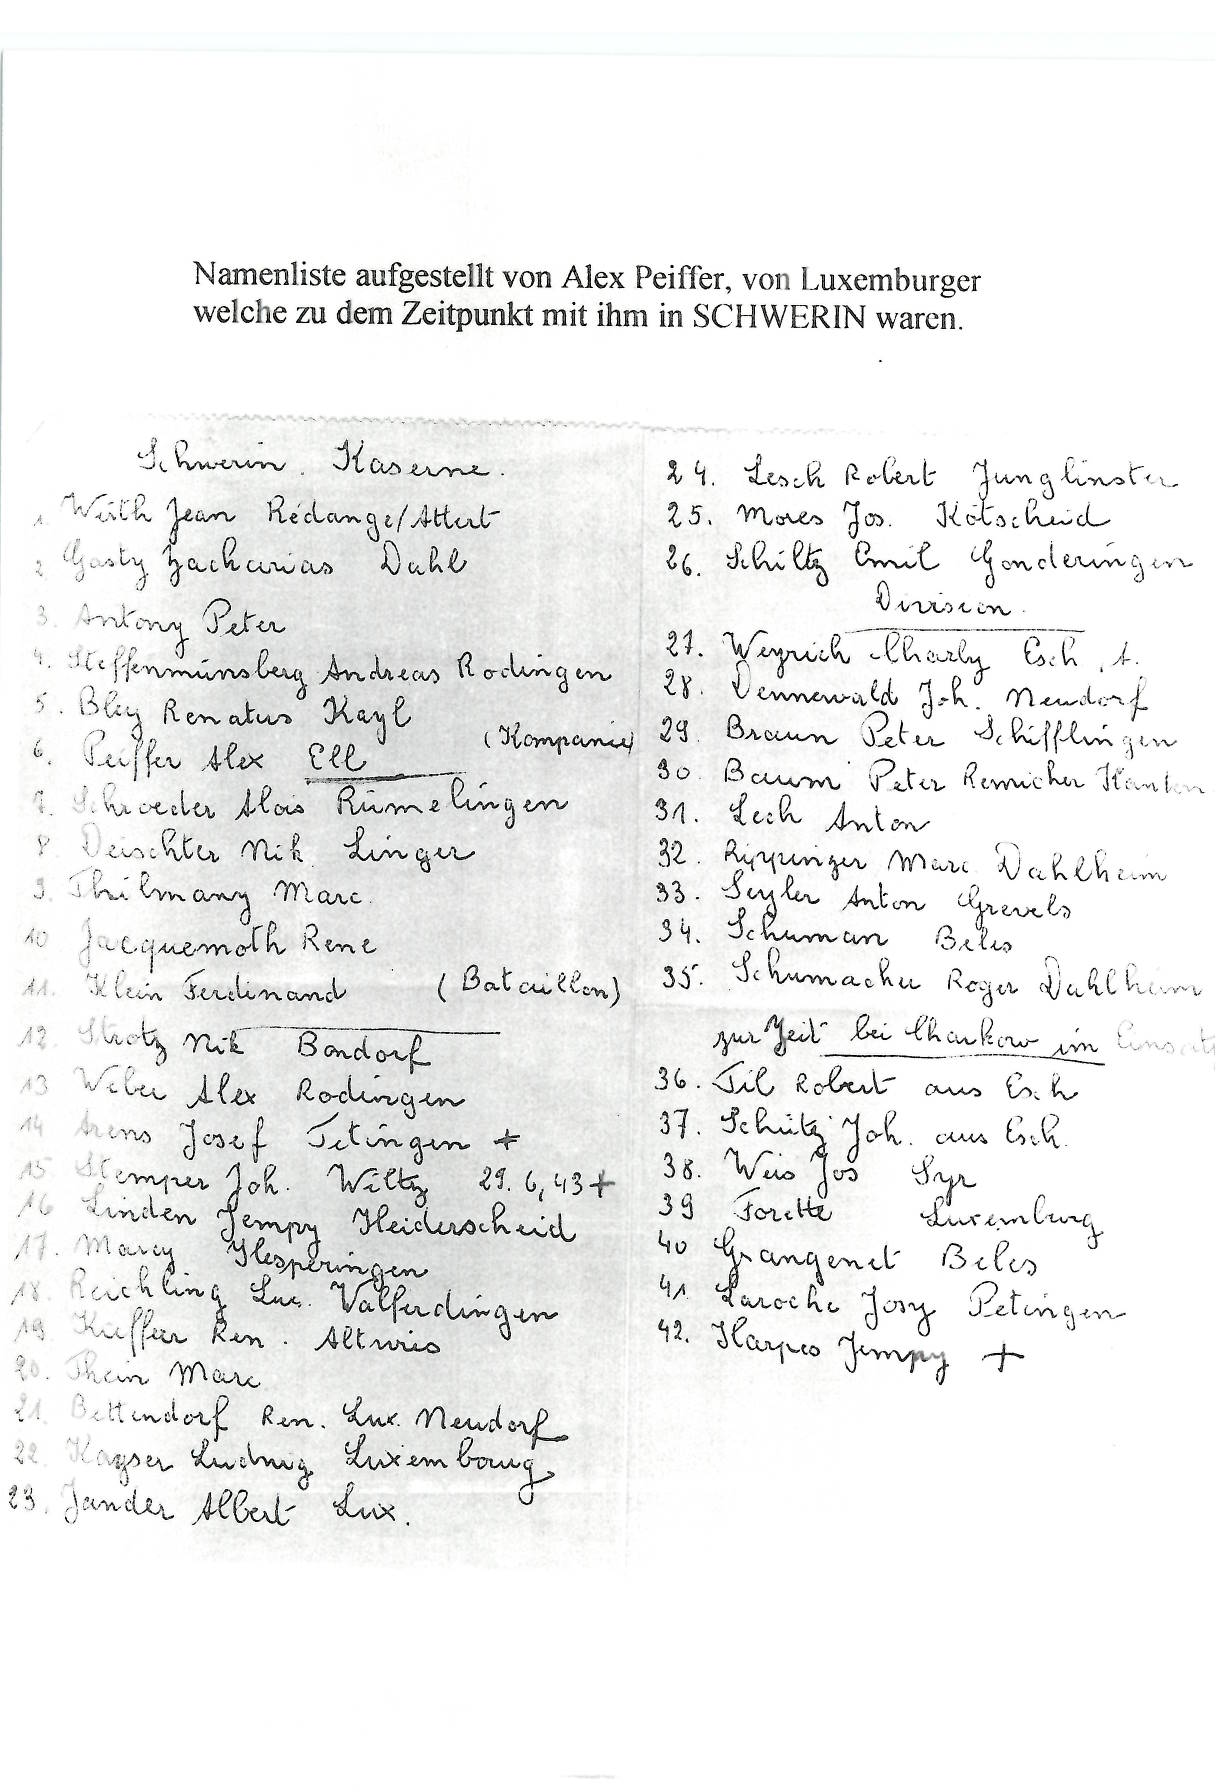 Namenliste aufgestellt von Alex Peiffer, von Luxemburger
welche zu dem Zeitpunkt mit ihm in SCHWERIN waren.
Schwerin. Kaserne.
1. Wirth Jean Rédange/Attert
2. Gasty Zacharias Dahl
3. Antony Peter
4. Steffenmünsberg Andreas Rodingen
5. Bley Renatus Kayl
6. Peiffer Alex Ell (Kompanie)
7. Schroeder Alois Rümelingen
8. Deischter Nik. Linger
9. Thilmany Marc.
10 Jacquemoth Rene
11. Klein Ferdinand (Bataillon)
12. Strotz Nik Bondorf
13 Weber Alex Rodingen
14 Arens Josef Tetingen +
15 Stemper Joh. Wiltz 29.6,43+
16 Linden Jempy Heiderscheid
17. Marcy Hesperingen
18. Reichling Luc. Walferdingen
19 Kieffer Ren. Altwies
20. Thein Marc
21. Bettendorf Ren. Lux. Neudorf
22. Kayser Ludwig Luxembourg
23. Jander Albert Lux.
24. Lesch Robert Junglinster
25. Mores Jos. Kötscheid
26. Schiltz Emil Gonderingen
Division.
27. Weyrich Charly Esch. A.
28. Dennewald Joh. Neudorf
29. Braun Peter Schifflingen
30. Baum Peter Remicher Kanton
31. Lech Anton
32. Rippinger Marc Dahlheim
33. Seyler Anton Grevels
34. Schuman Beles
35. Schumacher Roger Dahlheim
zur Zeit bei Charkow im Einsatz
36. Til Robert aus Esch
37. Schütz Joh. aus Esch.
38. Weis Jos Syr
39 Forette Luxemburg
40 Grangenet Beles
41. Laroche Josy Petingen
42. Harpes Jempy +